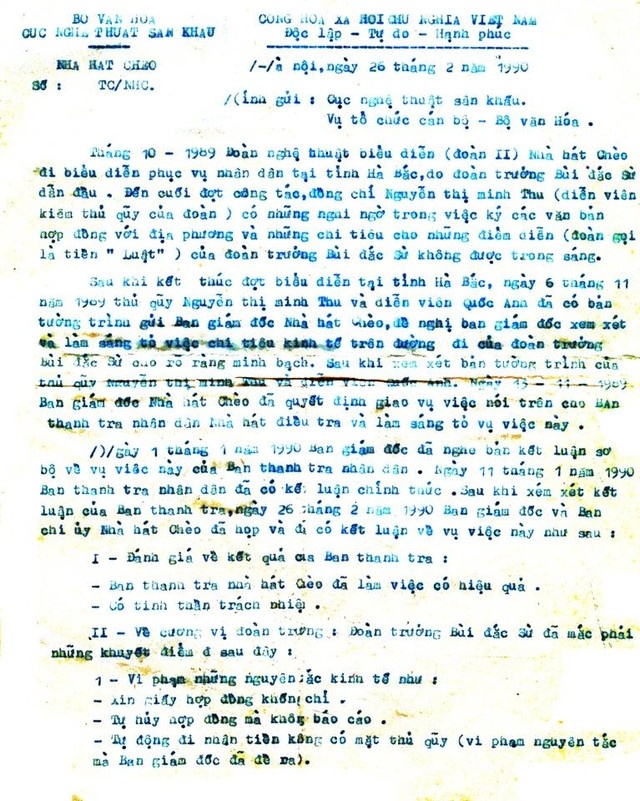 BỘ VĂN HÓA
CỤC NGHỆ THUẬT SÂN KHẤU
CỘNG HÒA XÃ HỘI CHỦ NGHĨA VIỆT NAM
Độc lập - Tự do - Hạnh phúc
NHÀ HÁT CHÈO
SỐ : TC/NHC.
/-/à nội, ngày 26 tháng 2 năm 1990
/(ính gửi : Cục nghệ thuật sân khấu.
Vụ tổ chức cán bộ - Bộ văn Hóa .
Tháng 10 - 1989 Đoàn nghệ thuật biểu diễn (đoàn II) Nhà hát Chèo
đi biểu diễn phục vụ nhân dân tại tỉnh Hà Bắc, do đoàn trưởng Bùi đắc Sừ
dẫn đầu . Đến cuối đợt công tác, đồng chí Nguyễn thị minh Thu (diễn viên
kiêm thủ qũy của đoàn ) có những nghi ngờ trong việc ký các văn bản
hợp đồng với địa phương và những chi tiêu cho những điểm diễn (đoàn gọi
là tiền " Luật" ) của đoàn trưởng Bùi đắc Sừ không được trong sáng.
Sau khi kết thúc đợt biểu diễn tại tỉnh Hà Bắc, ngày 6 tháng 11
năm 1989 thủ qũy Nguyễn thị minh Thu và diễn viên Quốc Anh đã có bản
tường trình gửi Ban giám đốc Nhà hát Chèo, đề nghị ban giám đốc xem xét
và làm sáng tỏ việc chi tiêu kinh tế trên đường đi của đoàn trưởng
Bùi đắc Sừ cho rõ ràng minh bạch. Sau khi xem xét bản tường trình của
thủ qũy Nguyễn thị minh Thu và diễn viên Quốc Anh. Ngày 13 - 11 - 1989
Ban giám đốc Nhà hát Chèo đã quyết định giao vụ việc nói trên cho BAn
thanh tra nhân dân Nhà hát điều tra và làm sáng tỏ vụ việc này .
/)/gày 1 tháng 1 năm 1990 Ban giám đốc đã nghe bản kết luận sơ
bộ về vụ việc này của Ban thanh tra nhân dân . Ngày 11 tháng 1 năm 1990
Ban thanh tra nhân dân đã có kết luận chính thức .Sau khi xém xét kết
luận của Ban thanh tra, ngày 26 tháng 2 năm 1990 Ban giám đốc và Ban
chi ủy Nhà hát Chèo đã họp và đi có kết luận về vụ việc này như sau :
I - Đánh giá về kết quả của Ban thanh tra :
- Ban thanh tra nhà hát Chèo đã làm việc có hiệu quả .
- Có tinh thần trách nhiệ .
II - Về cương vị đoàn trưởng : Đoàn trưởng Bùi đắc Sừ đã mắc phải
những khuyết điểm đ sau đây :
1 - Vi phạm những nguyên tắc kinh tế như :
- Xin giấy hợp đồng khống chỉ .
- Tự hủy hợp đồng mà không báo cáo .
- Tự động đi nhận tiền không có mặt thủ qũy (vi phạm nguyên tắc
mà Ban giám đốc đã đề ra).